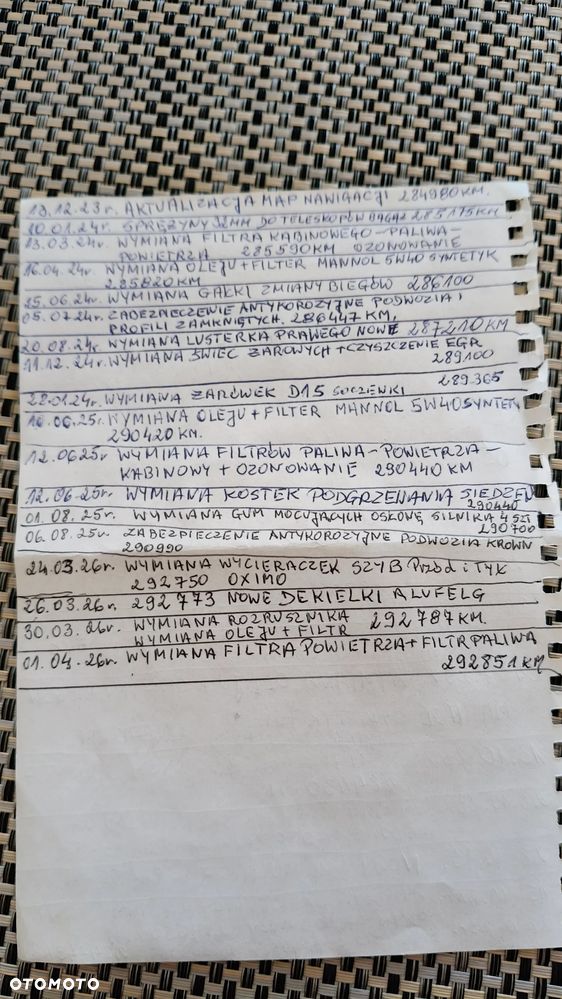 13.12.23r. AKTUALIZACJA MAP NAWIGACJI 284980KM.
10.01.24r. SPRĘŻYNY 32MM DO TELESKOPÓW BAGAŻ 285175KM
13.03.24r. WYMIANA FILTRA KABINOWEGO-PALIWA-
POWIETRZA 285590KM OZONOWANIE
16.04.24r. WYMIANA OLEJU+FILTER MANNOL 5W40 SYNTETYK
285820KM
25.06.24r. WYMIANA GAŁKI ZMIANY BIEGÓW 286100
05.07.24r. ZABEZPIECZENIE ANTYKOROZYJNE PODWOZIA I
PROFILI ZAMKNIĘTYCH. 286447KM.
20.08.24r. WYMIANA LUSTERKA PRAWEGO NOWE 287210KM
11.12.24r. WYMIANA ŚWIEC ŻAROWYCH +CZYSZCZENIE EGR
289100
28.01.24r. WYMIANA ŻARÓWEK D1S SOCZEWKI 289365
10.06.25r. WYMIANA OLEJU+FILTER MANNOL 5W40 SYNTETY
290420KM.
12.0625r WYMIANA FILTRÓW PALIWA-POWIETRZA-
KABINOWY + OZONOWANIE 290440KM
12.06.25r. WYMIANA KOSTEK PODGRZEWANIA SIEDZEŃ
290440
01.08.25r. WYMIANA GUM MOCUJĄCYCH OSŁONĘ SILNIKA 4SZT
290700
06.08.25r. ZABEZPIECZENIE ANTYKOROZYJNE PODWOZIA KROWN
290990
24.03.26r. WYMIANA WYCIERACZEK SZYB Przód i TYŁ
292750 OXIMO
26.03.26r. 292773 NOWE DEKIELKI ALUFELG
30.03.26r. WYMIANA ROZRUSZNIKA 292787KM.
WYMIANA OLEJU + FILTR
01.04.26r. WYMIANA FILTRA POWIETRZA+FILTR PALIWA
292851KM
OTOMOTO